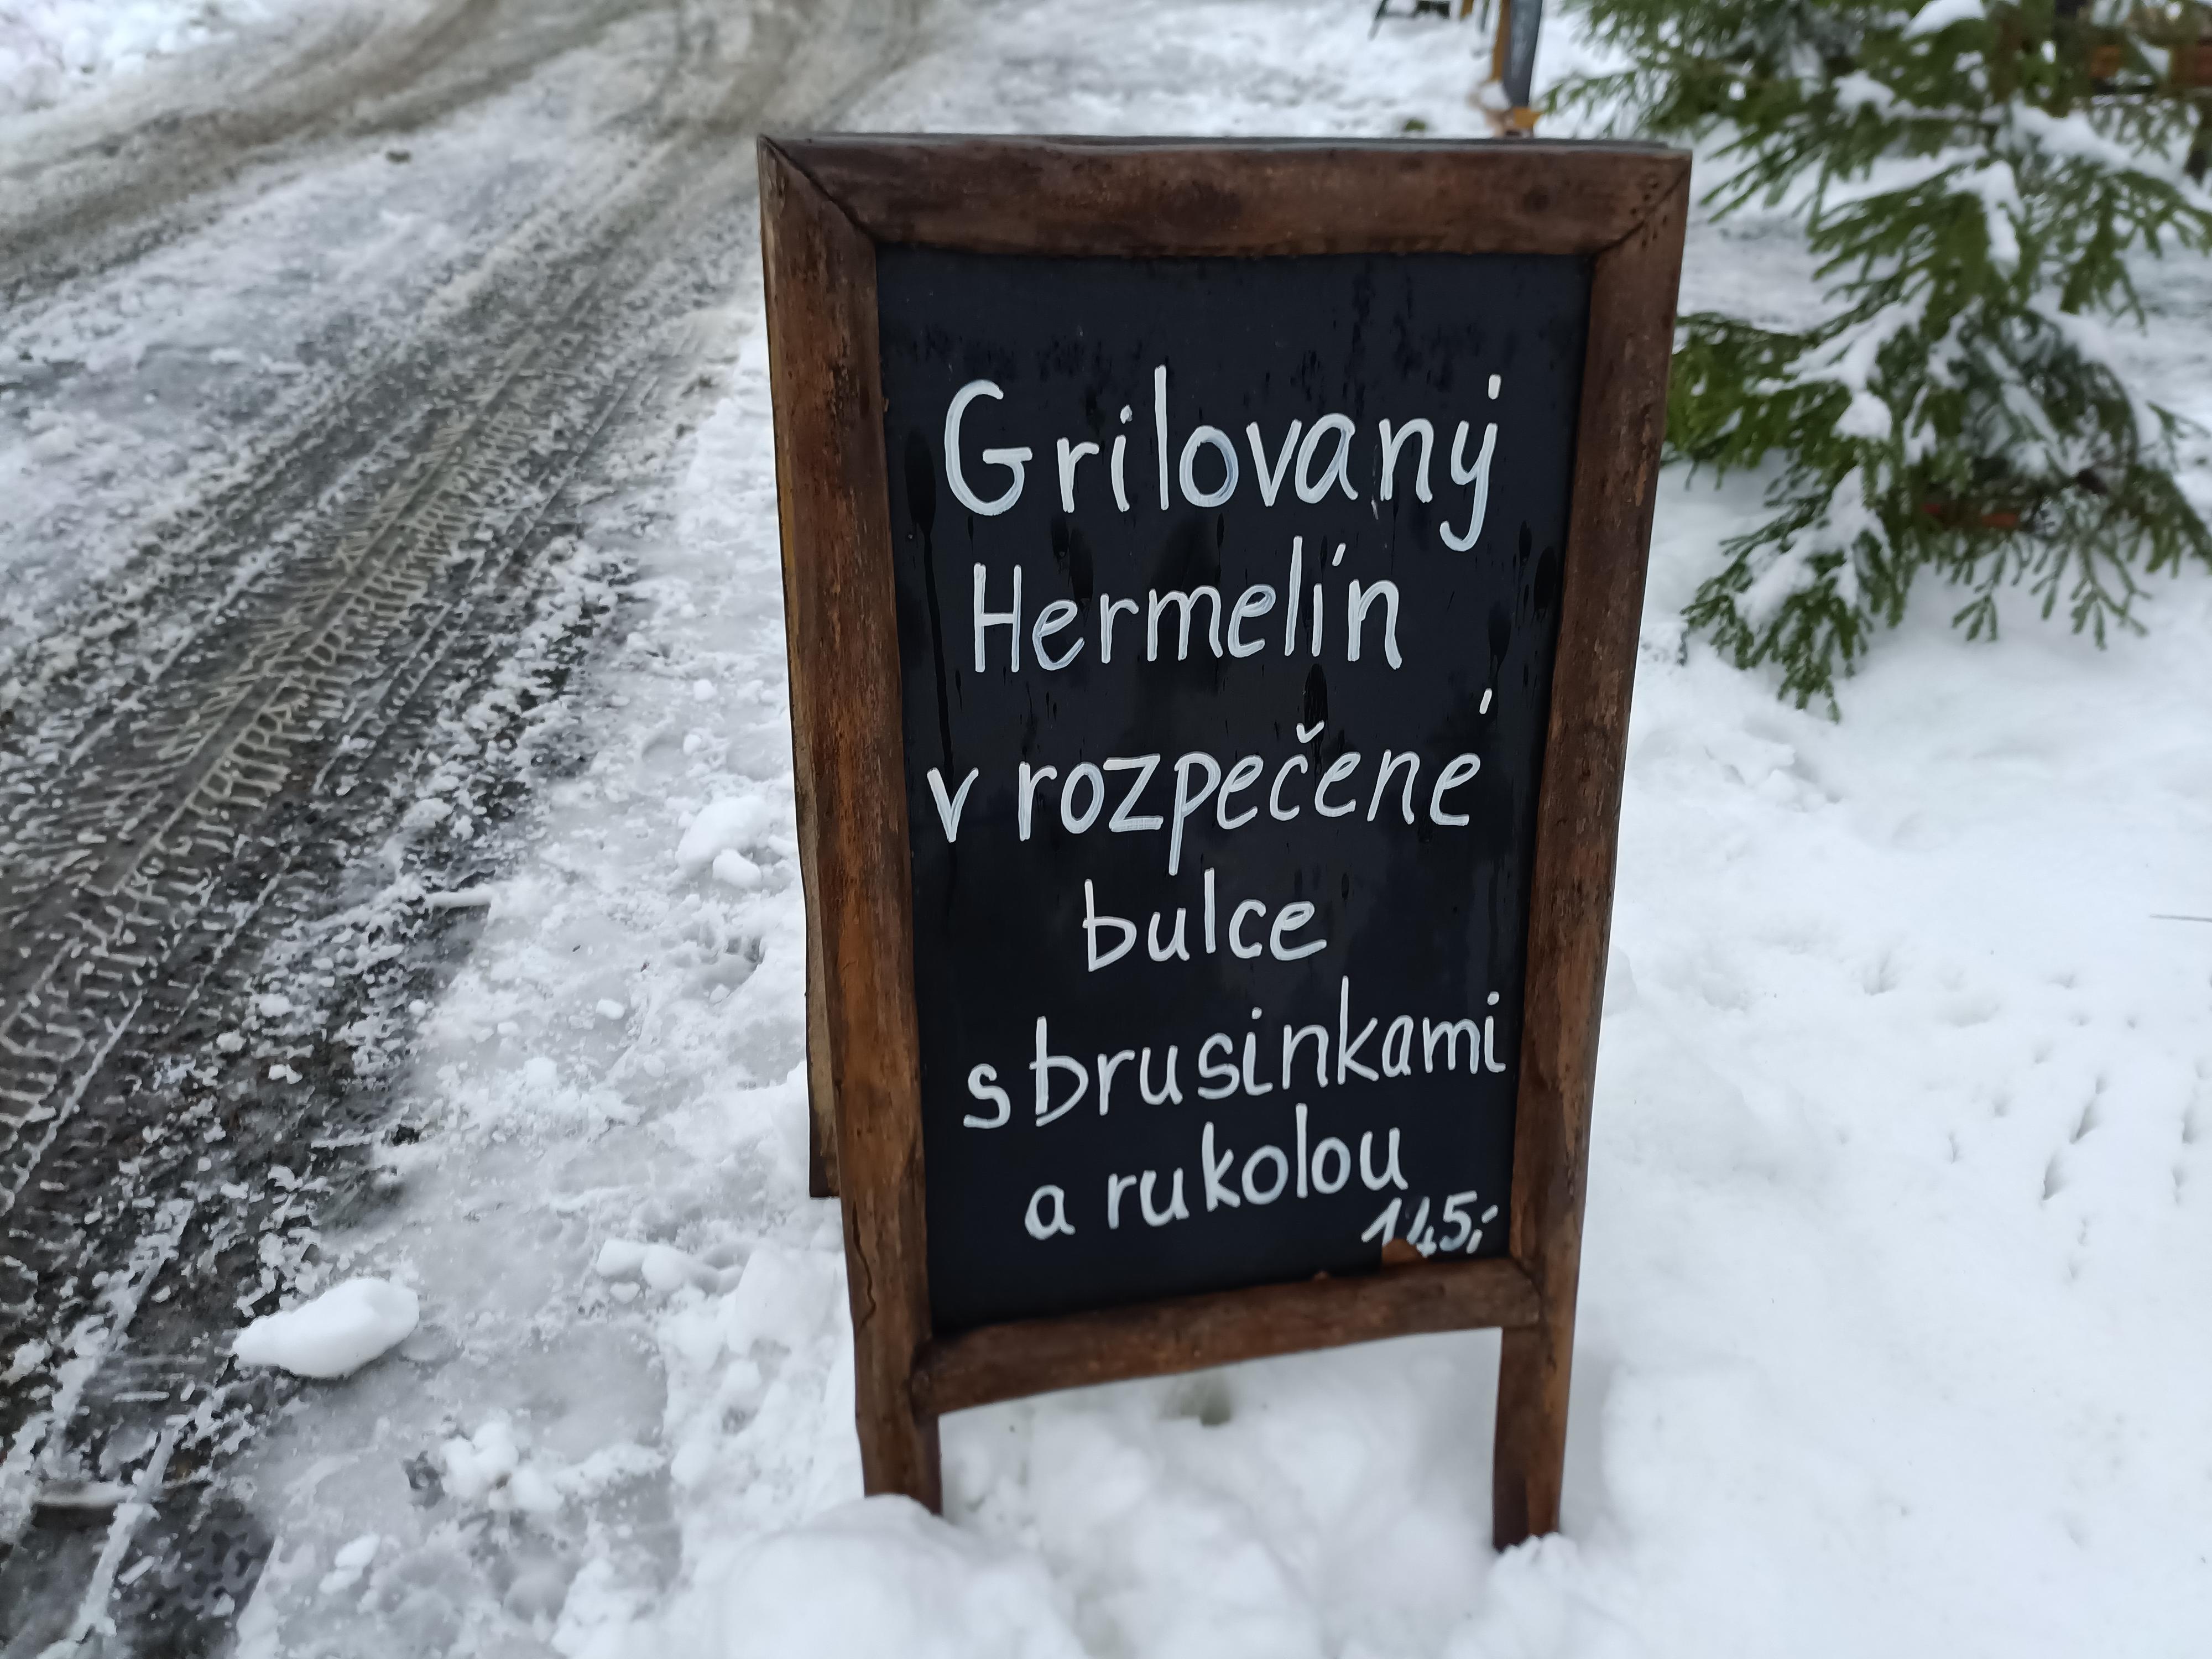 Grilovaný
Hermelín
v rozpečené
bulce
s brusinkami
a rukolou
145,-